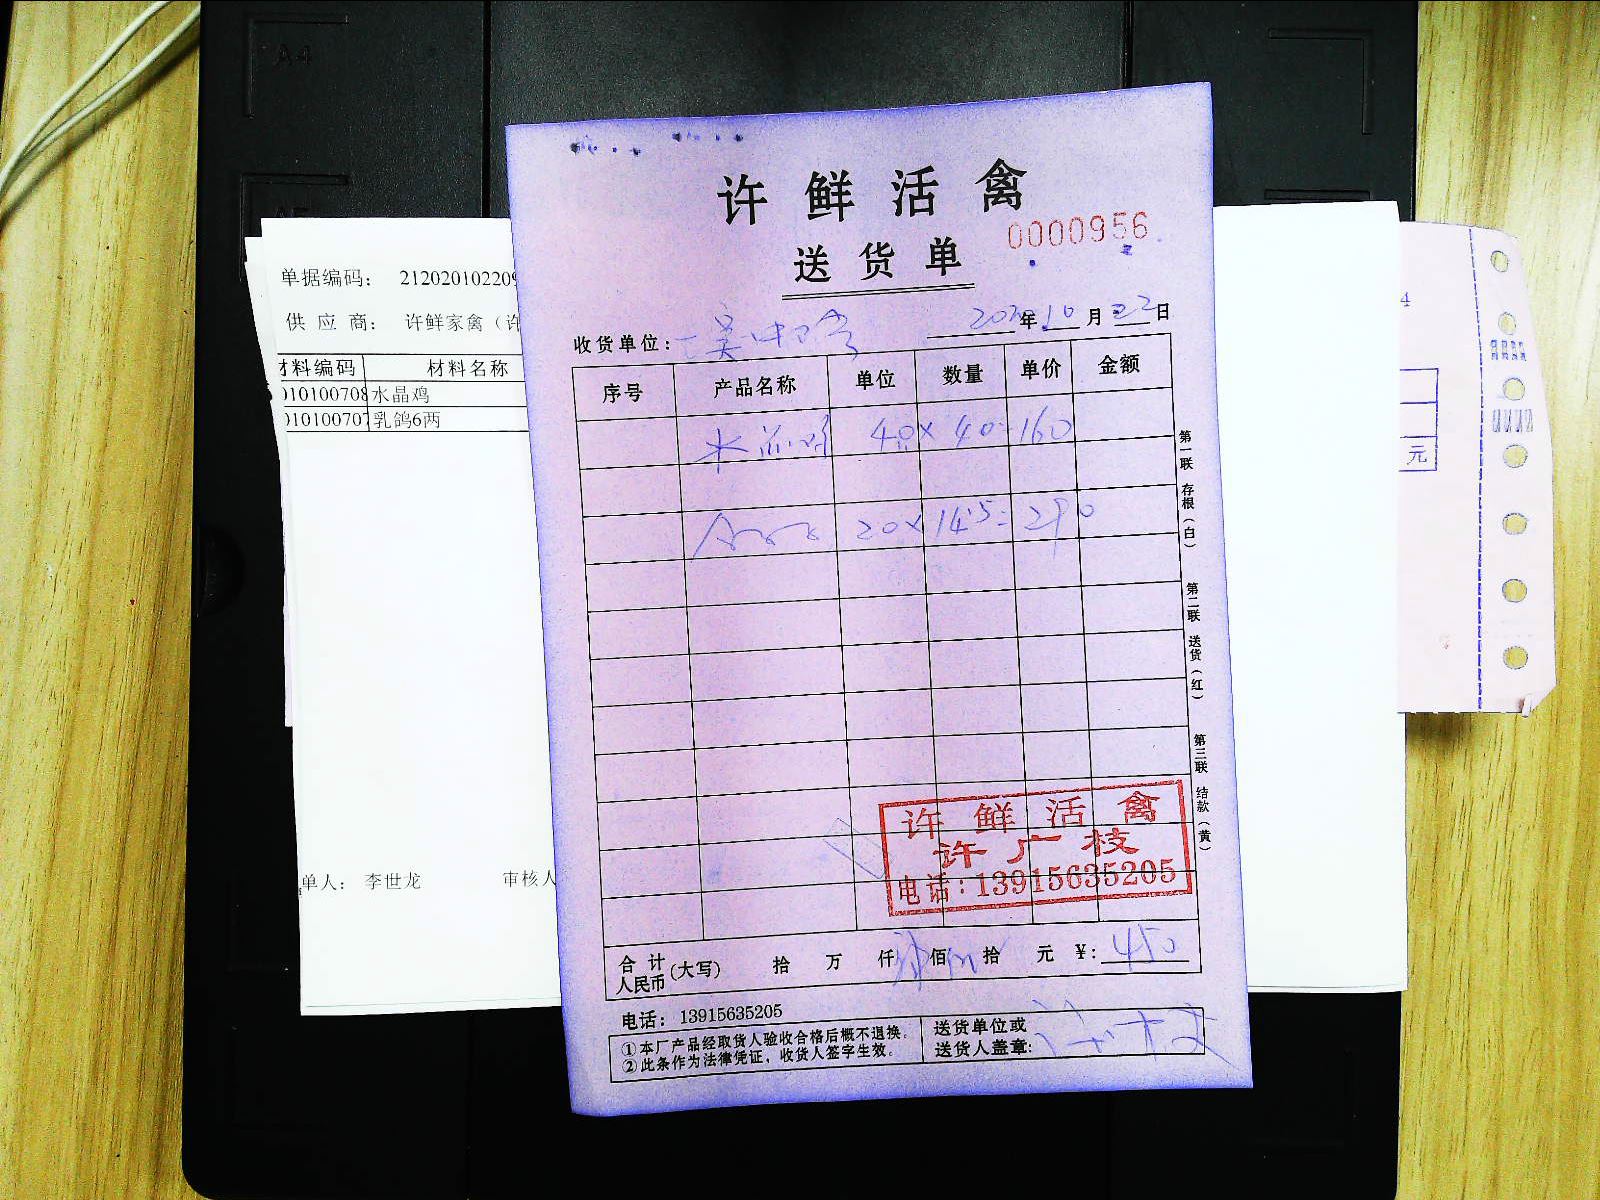 A4
许鲜活禽
0000956
送货单
单据编码： 21202010220
供应商： 许鲜家禽（许
收货单位：
2020年10月22日
材料编码 材料名称
010100708 水晶鸡
010100707 乳鸽6两
序号 产品名称 单位 数量 单价 金额
水 40×40=160
20×14.5=290
第一联 存根（白）
第二联 送货（红）
第三联 结款（黄）
4
元
许鲜活禽
许广枝
电话：13915635205
单人： 李世龙 审核人
合计人民币（大写） 拾 万 仟 佰 拾 元 ￥：450
电话：13915635205
①本厂产品经取货人验收合格后概不退换。
②此条作为法律凭证，收货人签字生效。
送货单位或
送货人盖章：许广枝